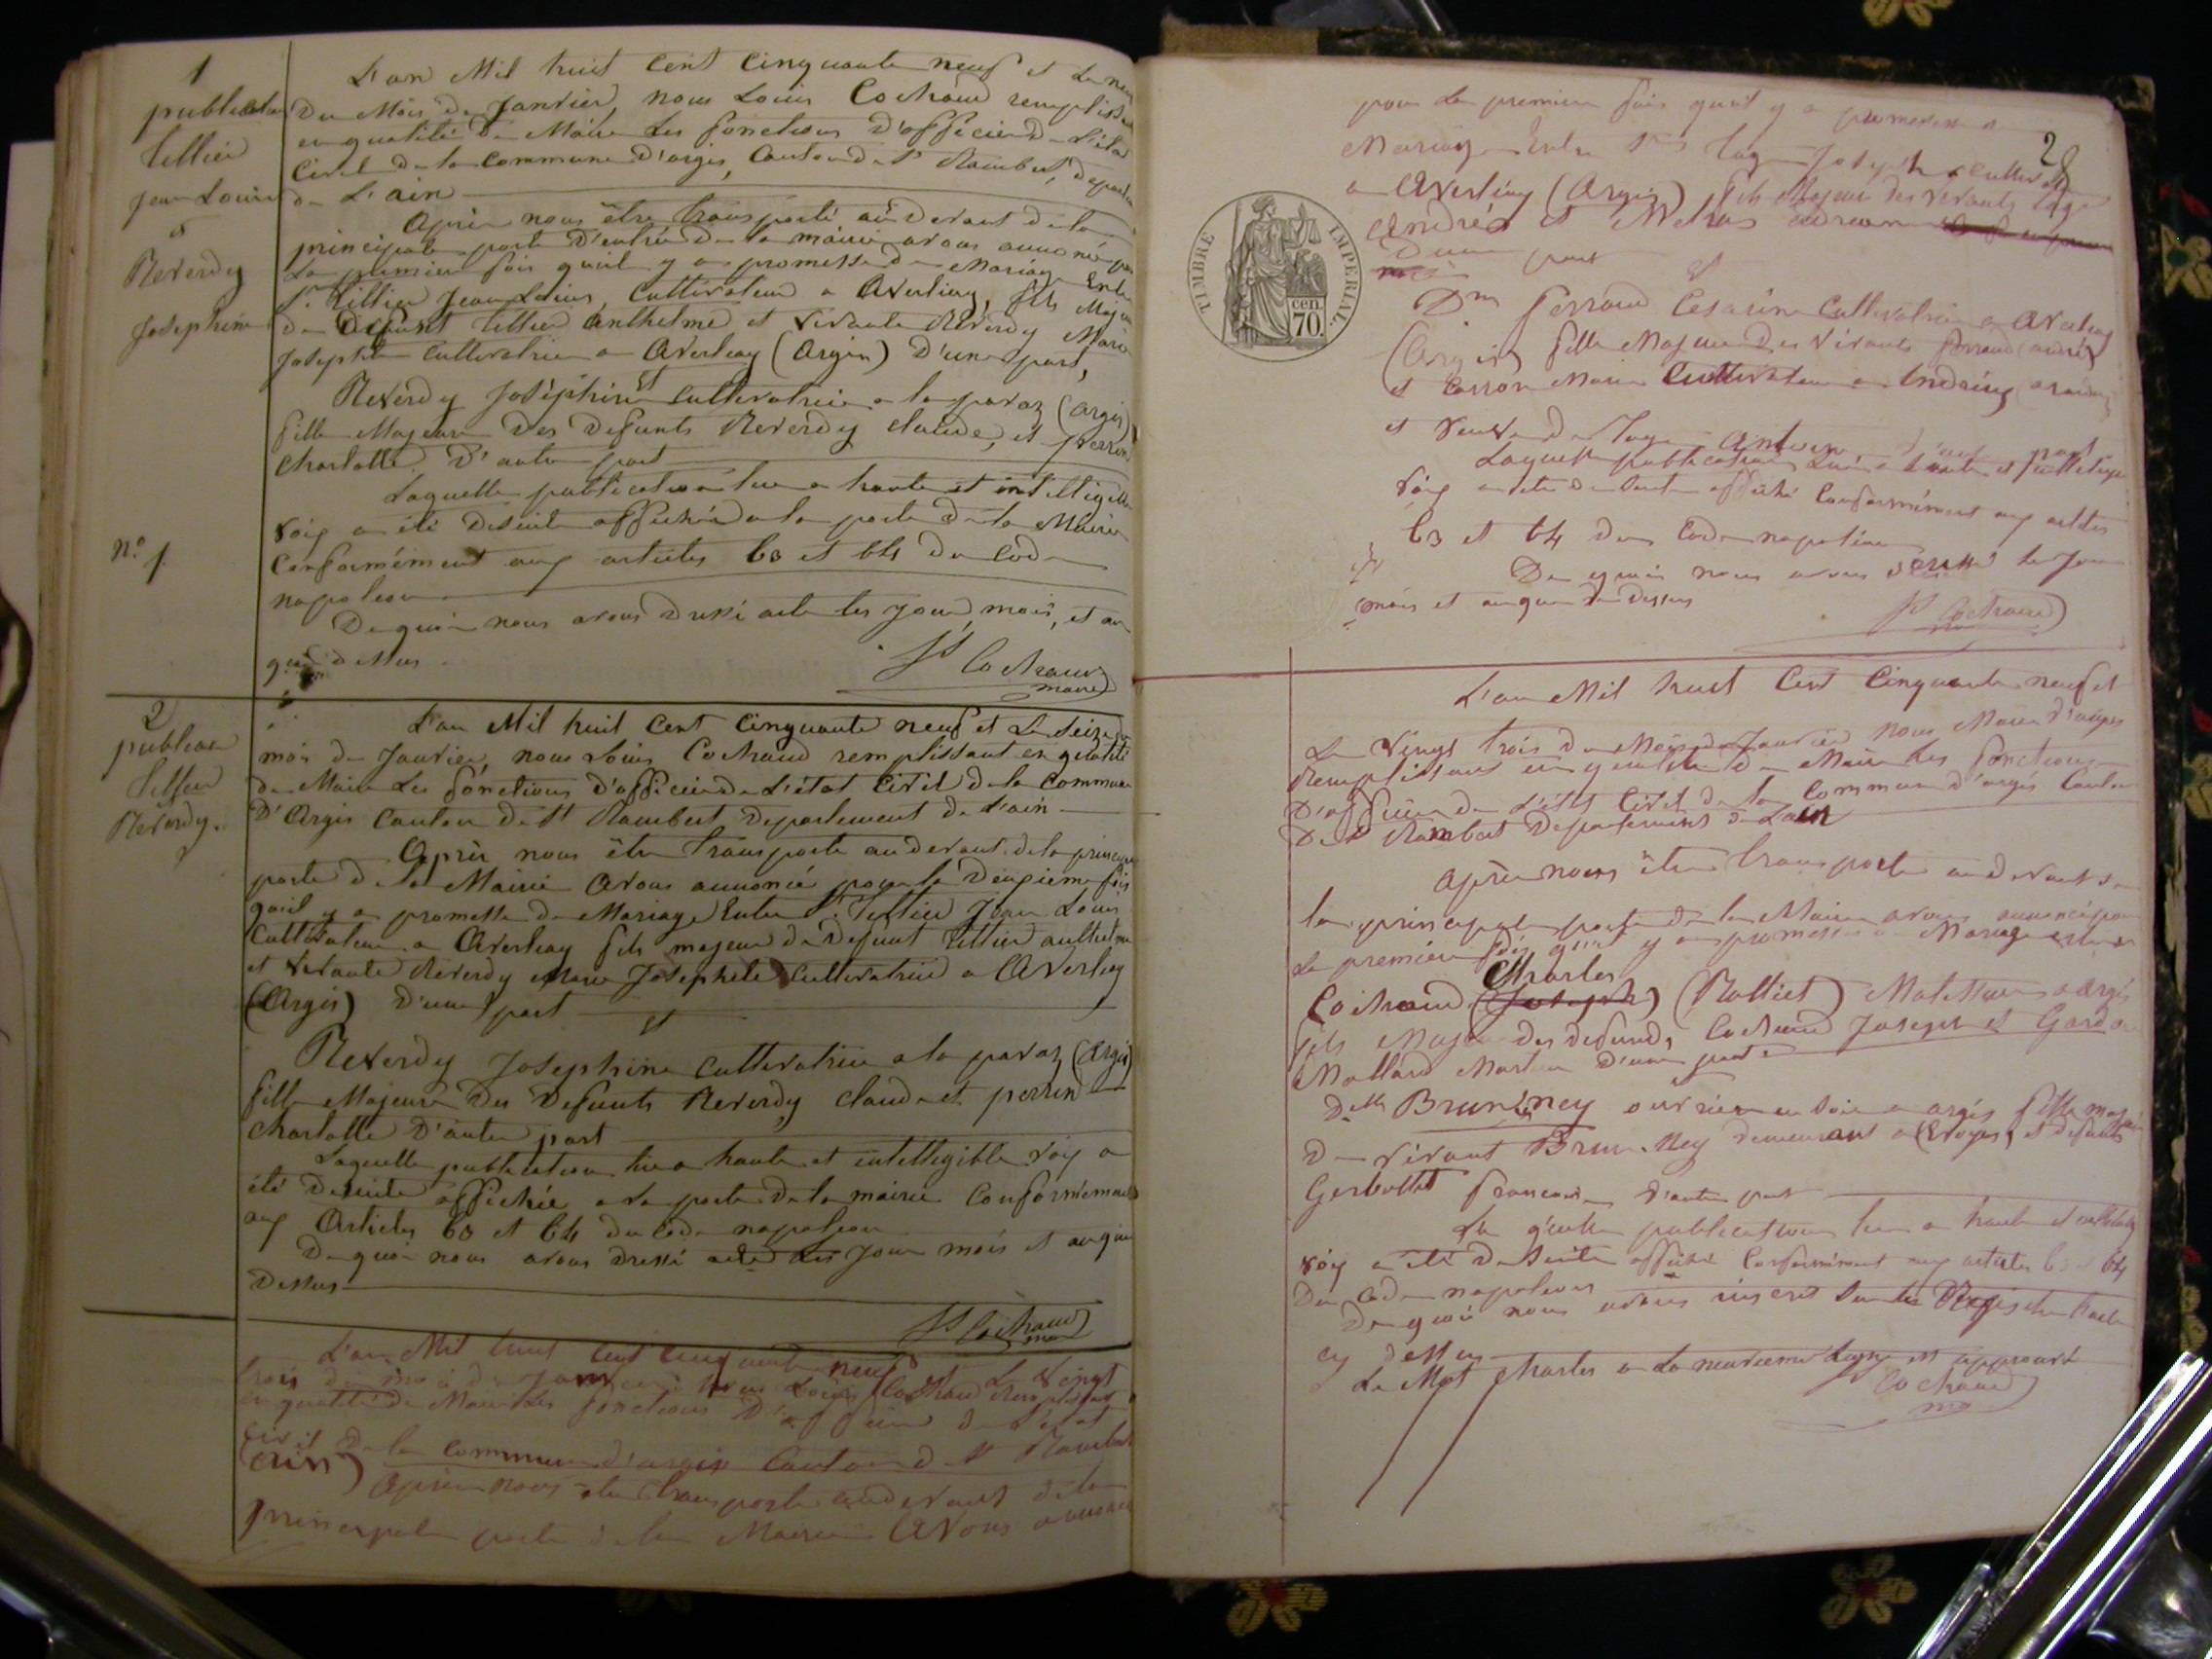 1
publication
Tellier
Jean Louis
et
Reverdy
Josephine
n.o 1.
L'an Mil huit Cent Cinquante neuf et le neuf
du Mois de Janvier, nous Louis Cochaud remplissa
en qualité de Maire les fonctions d'officier de l'état
Civil de la Commune d'argis, Canton de St Rambert, depart
de L'ain
Après nous être transporté au devant de la
principale porte d'entrée de la mairie avons annoncé po
la premier fois quil y a promesse de Mariage Entre
Sr. Tellier Jean Louis, Cultivateur a Averliay, fils Majeu
de Defunt Tellier Anthelme et vivante Reverdy Marie
Josephte Cultivatrice a Averliay (Argis) D'une part,
et
Reverdy Joséphine Cultivatrice a la pavaz (Argis)
fille Majeure Des Defunts Reverdy claude, et perrin
Charlotte, D'autre part
Laquelle publication lue a haute et intelligible
voix a été desuite affichée a la porte de la Mairie
Conformément aux articles 63 et 64 du Code
napoleon
De quoi nous avons dressé acte les jour, mois, et an
que dessus.
Ls Cochaud
maire
2
publication
Tellier
Reverdy.
L'an Mil huit Cent Cinquante neuf et Le Seize
mois de Janvier, nous Louis Cochaud remplissant en qualité
de Maire Les fonctions d'officier de L'état Civil de la Commune
D'Argis Canton De St Rambert Departement de L'ain
Après nous être transporté au devant de la principale
porte de la Mairie avons annoncé pour la Deuxieme fois
quil y a promesse de Mariage Entre Sr. Tellier Jean Louis
Cultivateur a Averliay fils majeur de Defunt Tellier anthelme
et vivante Reverdy Marie Josephete Cultivatrice a Averliay
(Argis) D'une part
et
Reverdy Josephine Cultivatrice a la pavaz (Argis)
fille Majeure Des Defunts Reverdy Claude et perrin
Charlotte D'autre part
Laquelle publication lue a haute et intelligible voix a
été Desuite affichée a la porte de la mairie Conformément
aux Articles 63 et 64 du Code napoleon
De quoi nous avons dressé acte les jour mois et an que
Dessus
Ls Cochaud
maire
L'an Mil huit Cent Cinquante neuf et Le Vingt
trois du mois de Janvier nous Louis Cochaud Remplissant
en qualité de Maire Les fonctions D'officier de L'état
civil de la Commune d'argis Canton de St Rambert
(ain)
Après nous être transporté au devant de la
principale porte de la Mairie Avons annoncé
2
pour la premiere fois quil y a promesse de
Mariage Entre Sr Joseph Cultivateur
a Averliay (Argis) fils Majeur des vivants
André et
D'une part
et
TIMBRE IMPERIAL.
cen. 70.
Dme ferrand Cesarine Cultivatrice a Averliay
(Argis) fille Majeure Des Vivants ferrand andré
et Carron Marie Cultivateur a
et veuve de Antoine, d'autre part
Laquelle publication Lue a haute et intelligible
voix a été de suite affiché Conformément aux articles
63 et 64 du Code napoléon
De quoi nous avons dressé les jour
mois et an que Dessus
Ls Cochaud
L'an Mil huit Cent Cinquante neuf et
Le Vingt trois du Mois de Janvier nous Maire d'argis
Remplissant en qualité de Maire Les fonctions
D'officier de L'état Civil de la Commune d'argis Canton
De St Rambert Departement de Lain
Après nous être transporté au devant de
la principale porte de la Mairie avons annoncé pour
La premiere fois quil y a promesse de Mariage entre
Charles
Cochaud (Joseph) (Rolliet) a Argis
fils Majeur des defunts Cochaud Joseph et
Mollard D'une part
Delle Brun Ney ouvrière en Soie a argis fille majeure
De vivant Brun Ney demeurant a et defunte
Gerbollet francoise D'autre part
La quelle publication lue a haute et intelligible
voix a été De suite affiché Conformément aux articles 63 et 64
Du Code napoleon
De quoi nous avons inscrit Sur les Registres
cy dessus
Le Mot Charles a La neuvieme Ligne est approuvé
Cochaud